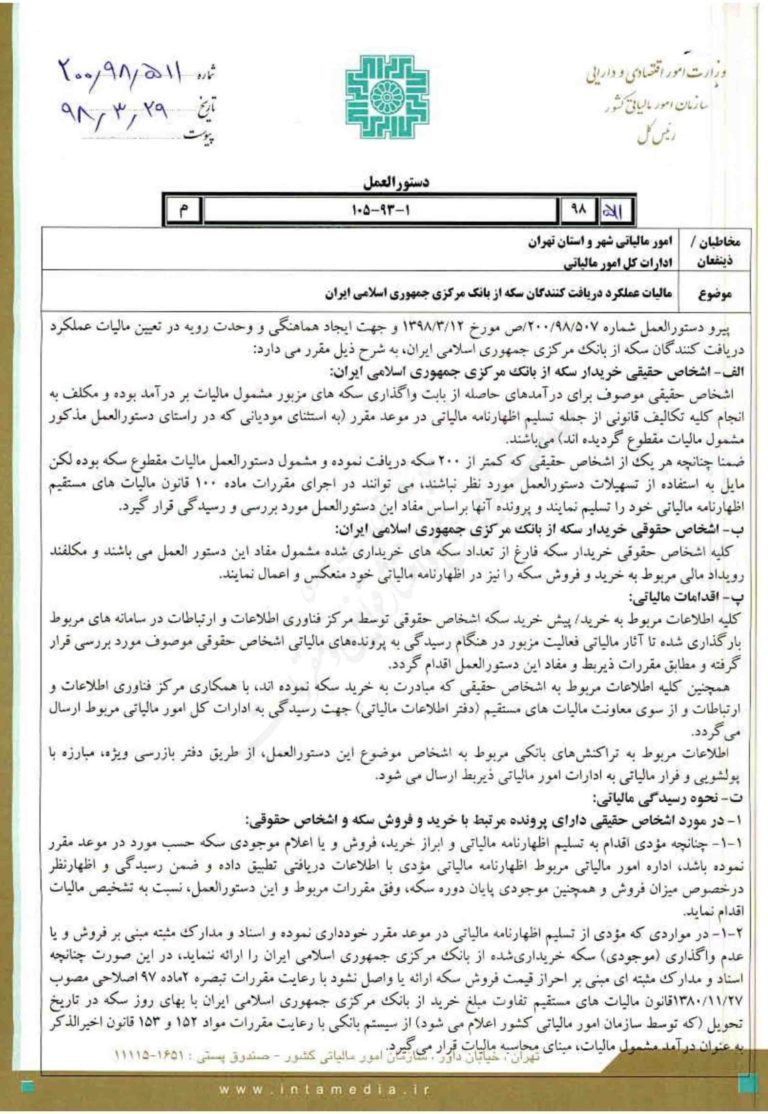 وزارت امور اقتصادی و دارایی
سازمان امور مالیاتی کشور
رئیس کل
شماره ۲۰۰/۹۸/۵۱۱
تاریخ ۹۸/۳/۲۹
پیوست
دستورالعمل
۵۱۱ ۹۸ ۱-۹۳-۱۰۵ م
مخاطبان / ذینفعان
امور مالیاتی شهر و استان تهران
ادارات کل امور مالیاتی
موضوع مالیات عملکرد دریافت کنندگان سکه از بانک مرکزی جمهوری اسلامی ایران
پیرو دستورالعمل شماره ۲۰۰/۹۸/۵۰۷/ص مورخ ۱۳۹۸/۳/۱۲ و جهت ایجاد هماهنگی و وحدت رویه در تعیین مالیات عملکرد
دریافت کنندگان سکه از بانک مرکزی جمهوری اسلامی ایران، به شرح ذیل مقرر می دارد:
الف- اشخاص حقیقی خریدار سکه از بانک مرکزی جمهوری اسلامی ایران:
اشخاص حقیقی موصوف برای درآمدهای حاصله از بابت واگذاری سکه های مزبور مشمول مالیات بر درآمد بوده و مکلف به
انجام کلیه تکالیف قانونی از جمله تسلیم اظهارنامه مالیاتی در موعد مقرر (به استثنای مودیانی که در راستای دستورالعمل مذکور
مشمول مالیات مقطوع گردیده اند) می‌باشند.
ضمنا چنانچه هر یک از اشخاص حقیقی که کمتر از ۲۰۰ سکه دریافت نموده و مشمول دستورالعمل مالیات مقطوع سکه بوده لکن
مایل به استفاده از تسهیلات دستورالعمل مورد نظر نباشند، می توانند در اجرای مقررات ماده ۱۰۰ قانون مالیات های مستقیم
اظهارنامه مالیاتی خود را تسلیم نمایند و پرونده آنها براساس مفاد این دستورالعمل مورد بررسی و رسیدگی قرار گیرد.
ب- اشخاص حقوقی خریدار سکه از بانک مرکزی جمهوری اسلامی ایران:
کلیه اشخاص حقوقی خریدار سکه فارغ از تعداد سکه های خریداری شده مشمول مفاد این دستور العمل می باشند و مکلفند
رویداد مالی مربوط به خرید و فروش سکه را نیز در اظهارنامه مالیاتی خود منعکس و اعمال نمایند.
پ- اقدامات مالیاتی:
کلیه اطلاعات مربوط به خرید/ پیش خرید سکه اشخاص حقوقی توسط مرکز فناوری اطلاعات و ارتباطات در سامانه های مربوط
بارگذاری شده تا آثار مالیاتی فعالیت مزبور در هنگام رسیدگی به پرونده‌های مالیاتی اشخاص حقوقی موصوف مورد بررسی قرار
گرفته و مطابق مقررات ذیربط و مفاد این دستورالعمل اقدام گردد.
همچنین کلیه اطلاعات مربوط به اشخاص حقیقی که مبادرت به خرید سکه نموده اند، با همکاری مرکز فناوری اطلاعات و
ارتباطات و از سوی معاونت مالیات های مستقیم (دفتر اطلاعات مالیاتی) جهت رسیدگی به ادارات کل امور مالیاتی مربوط ارسال
می گردد.
اطلاعات مربوط به تراکنش‌های بانکی مربوط به اشخاص موضوع این دستورالعمل، از طریق دفتر بازرسی ویژه، مبارزه با
پولشویی و فرار مالیاتی به ادارات امور مالیاتی ذیربط ارسال می شود.
ت- نحوه رسیدگی مالیاتی:
۱- در مورد اشخاص حقیقی دارای پرونده مرتبط با خرید و فروش سکه و اشخاص حقوقی:
۱-۱- چنانچه مؤدی اقدام به تسلیم اظهارنامه مالیاتی و ابراز خرید، فروش و یا اعلام موجودی سکه حسب مورد در موعد مقرر
نموده باشد، اداره امور مالیاتی مربوط اظهارنامه مالیاتی مؤدی با اطلاعات دریافتی تطبیق داده و ضمن رسیدگی و اظهارنظر
درخصوص میزان فروش و همچنین موجودی پایان دوره سکه، وفق مقررات مربوط و این دستورالعمل، نسبت به تشخیص مالیات
اقدام نماید.
۱-۲- در مواردی که مؤدی از تسلیم اظهارنامه مالیاتی در موعد مقرر خودداری نموده و اسناد و مدارک مثبته مبنی بر فروش و یا
عدم واگذاری (موجودی) سکه خریداری‌شده از بانک مرکزی جمهوری اسلامی ایران را ارائه ننماید، در این صورت چنانچه
اسناد و مدارک مثبته ای مبنی بر احراز قیمت فروش سکه ارائه یا واصل نشود با رعایت مقررات تبصره ۲ماده ۹۷ اصلاحی مصوب
۱۳۸۰/۱۱/۲۷قانون مالیات های مستقیم تفاوت مبلغ خرید از بانک مرکزی جمهوری اسلامی ایران با بهای روز سکه در تاریخ
تحویل (که توسط سازمان امور مالیاتی کشور اعلام می شود) از سیستم بانکی با رعایت مقررات مواد ۱۵۲ و ۱۵۳ قانون اخیرالذکر
به عنوان درآمد مشمول مالیات، مبنای محاسبه مالیات قرار می‌گیرد.
تهران، خیابان داور، سازمان امور مالیاتی کشور - صندوق پستی : ۱۶۵۱-۱۱۱۱۵
www.intamedia.ir